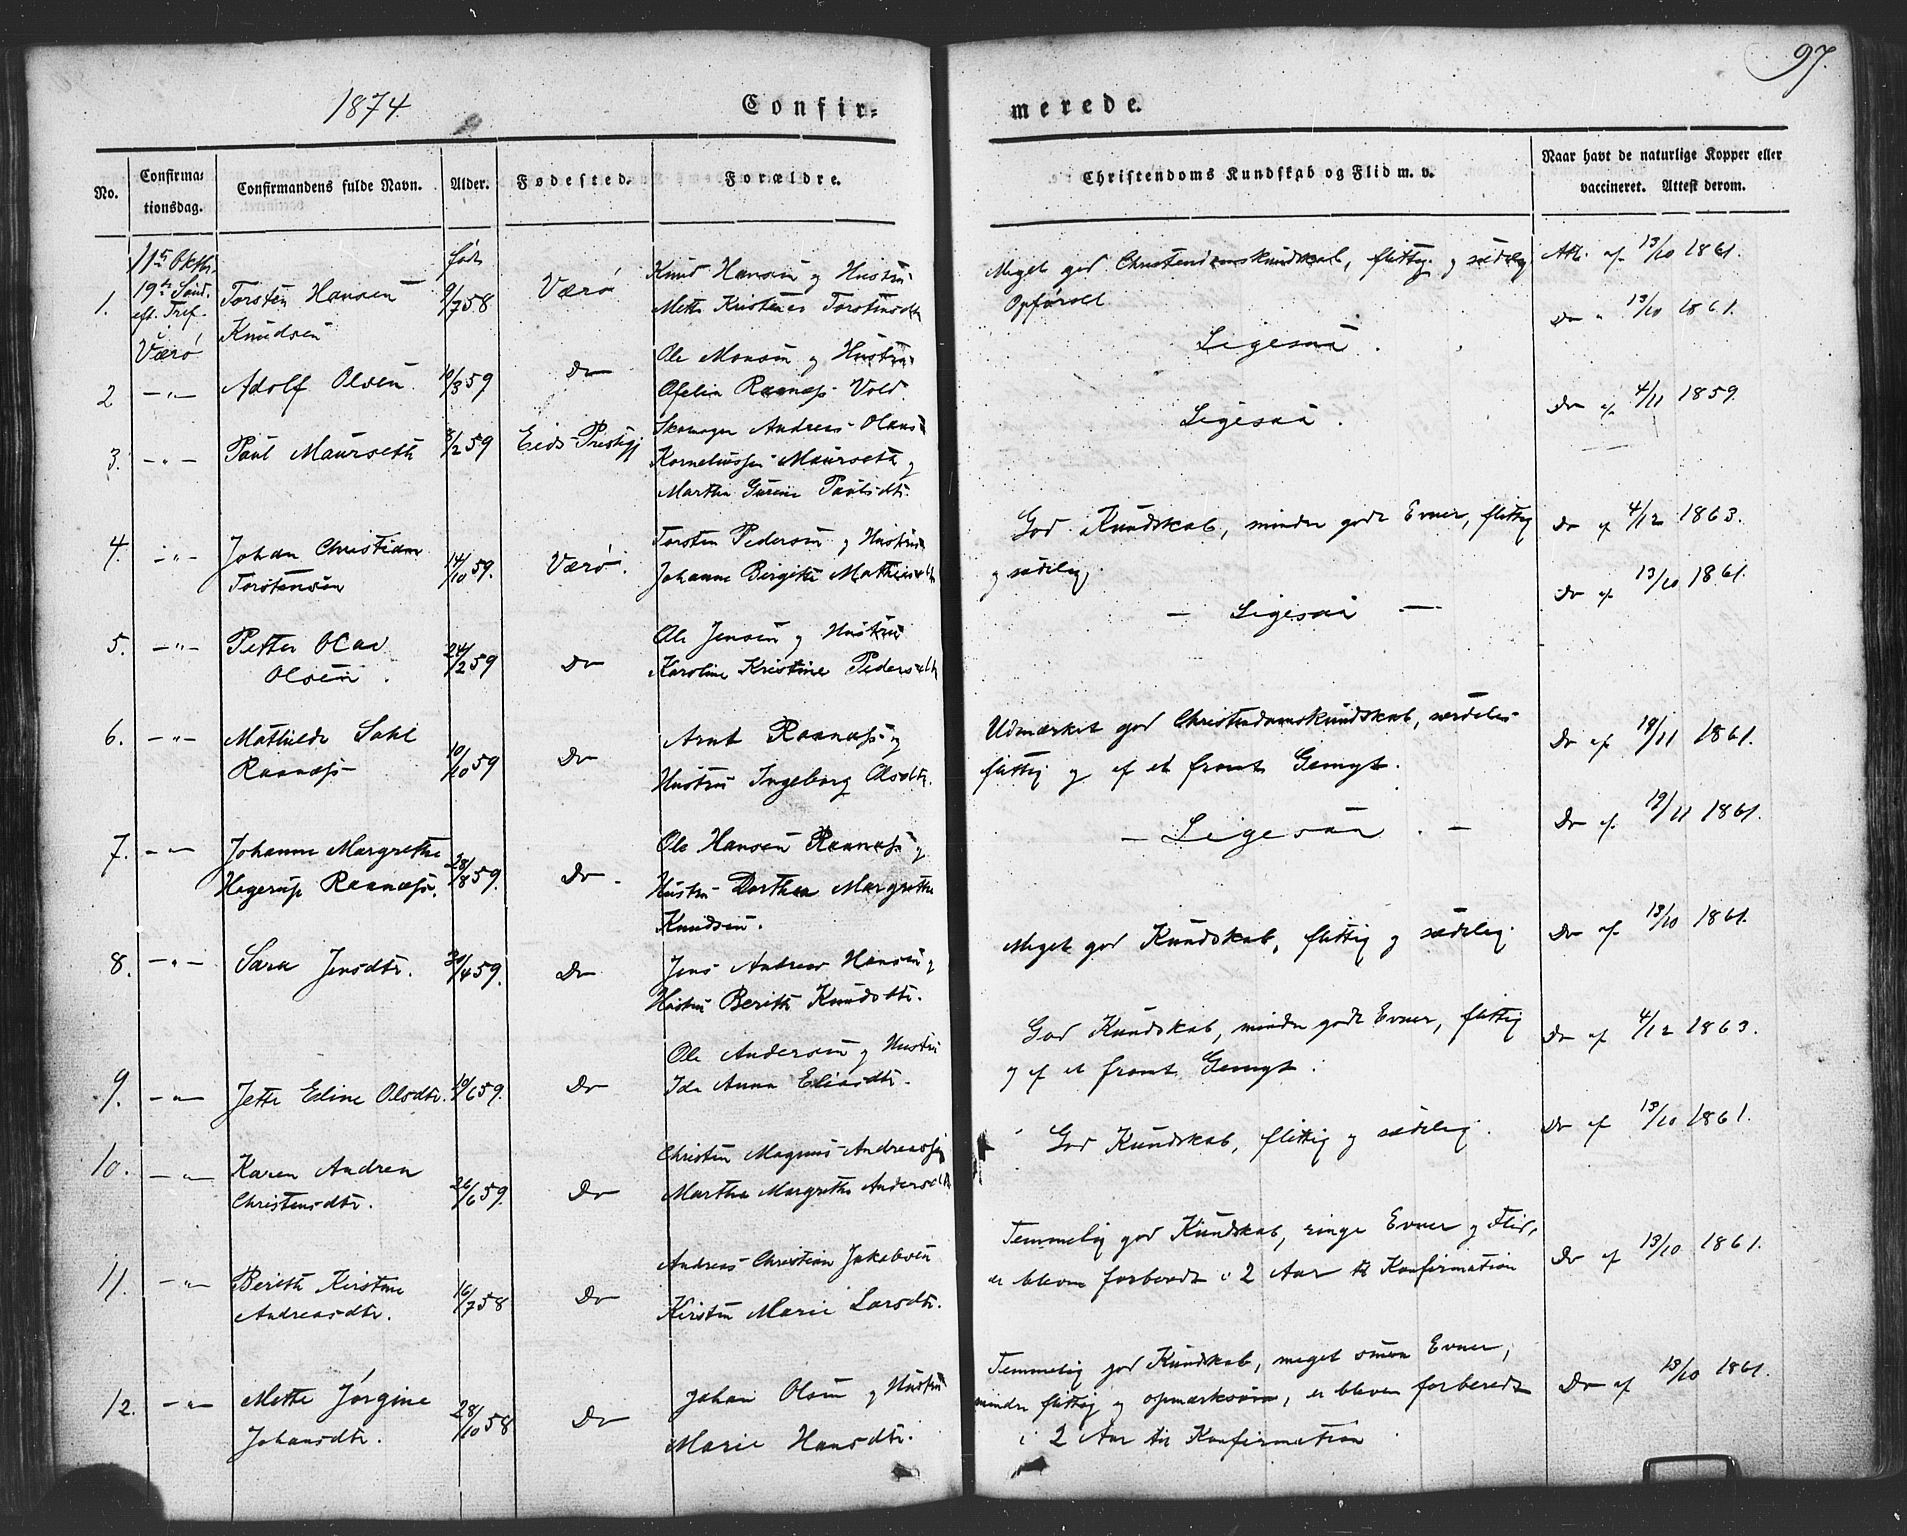 97.
1874.
Confir-
merede.
No.
Confirma-
tionsdag.
Confirmandens fulde Navn.
Alder.
Fødested.
Forældre.
Christendoms Kundskab og Flid m. v.
Naar havt de naturlige Kopper eller
vaccineret. Attest derom.
11te Oktbr.
19de Sønd.
eft. Tref.
Værø
1.
Torsten Hansen
Knudsen
født
9/7 58
Værø
Knud Hansen og Hustru
Mette Kristence Torstensdtr
Meget god Christendomskundskab, flittig og sædelig
Opførsel
Att. af 13/10 1861.
2
— " —
Adolf Olsen
10/3 59
Do
Ole Monsen og Hustru
Ofelia Raanæs Vold
Ligesaa.
Do " 13/10 1861.
3.
— " —
Paul Maurseth
8/2 59
Eids Prestegj
Skomager Andreas Olaus
Korneliussen Maurseth og
Martha Gurine Paulsdtr.
Ligesaa.
Do af 4/11 1859.
4.
— " —
Johan Christian
Torstensen
14/10 59.
Værø.
Torsten Pedersen og Hustru
Johanne Birgitte Mathiasdtr
God Kundskab, mindre gode Evner, flittig
og sædelig.
Do af 4/12 1863.
5.
— " —
Petter Olai
Olsen.
24/2 59
Do
Ole Jensen og Hustru
Karoline Kristine Pedersdtr
— Ligesaa —
Do af 13/10 1861.
6.
— " —
Mathilde Dahl
Raanæs
10/10 59
Do
Arnt Raanæs og
Hustru Ingeborg Olsdtr.
Udmærket god Christendomskundskab, særdeles
flittig og af et fromt Gemyt.
Do af 19/11 1861.
7.
— " —
Johanne Margrethe
Hagerup Raanæs.
28/8 59.
Do.
Ole Hansen Raanæs og
Hustru Dorthea Margrethe
Knudsen.
— Ligesaa. —
Do af. 19/11 1861.
8.
— " —
Sara Jensdtr.
30/4 59.
Do
Jens Andreas Hansen og
Hustru Berith Knudsdtr.
Meget god Kundskab, flittig og sædelig.
Do af 13/10 1861.
9.
— " —
Jette Edine Olsdtr.
10/6 59.
Do
Ole Andersen og Hustru
Ida Anna Eliasdtr.
God Kundskab, mindre gode Evner, flittig
og af et fromt Gemyt.
Do af 4/12 1863.
10.
— " —
Karen Andrea
Christensdtr.
26/6 59.
Do
Christen Magnus Andreassen
Martha Margrethe Andersdtr
God Kundskab, flittig og sædelig.
Do af 13/10 1861.
11.
— " —
Berith Kirstine
Andreasdtr.
16/7 58
Do
Andreas Christian Jakobsen
Kirsten Marie Larsdtr.
Temmelig god Kundskab, ringe Evner og Flid,
er bleven forberedt i 2 Aar til Konfirmation
Do af 13/10 1861.
12.
— " —
Mette Jørgine
Johansdtr.
28/10 58
Do
Johan Olsen og Hustru
Marie Hansdtr.
Temmelig god Kundskab, meget smaa Evner,
mindre flittig og opmærksom, er bleven forberedt
i 2 Aar til Konfirmation
Do af 13/10 1861.